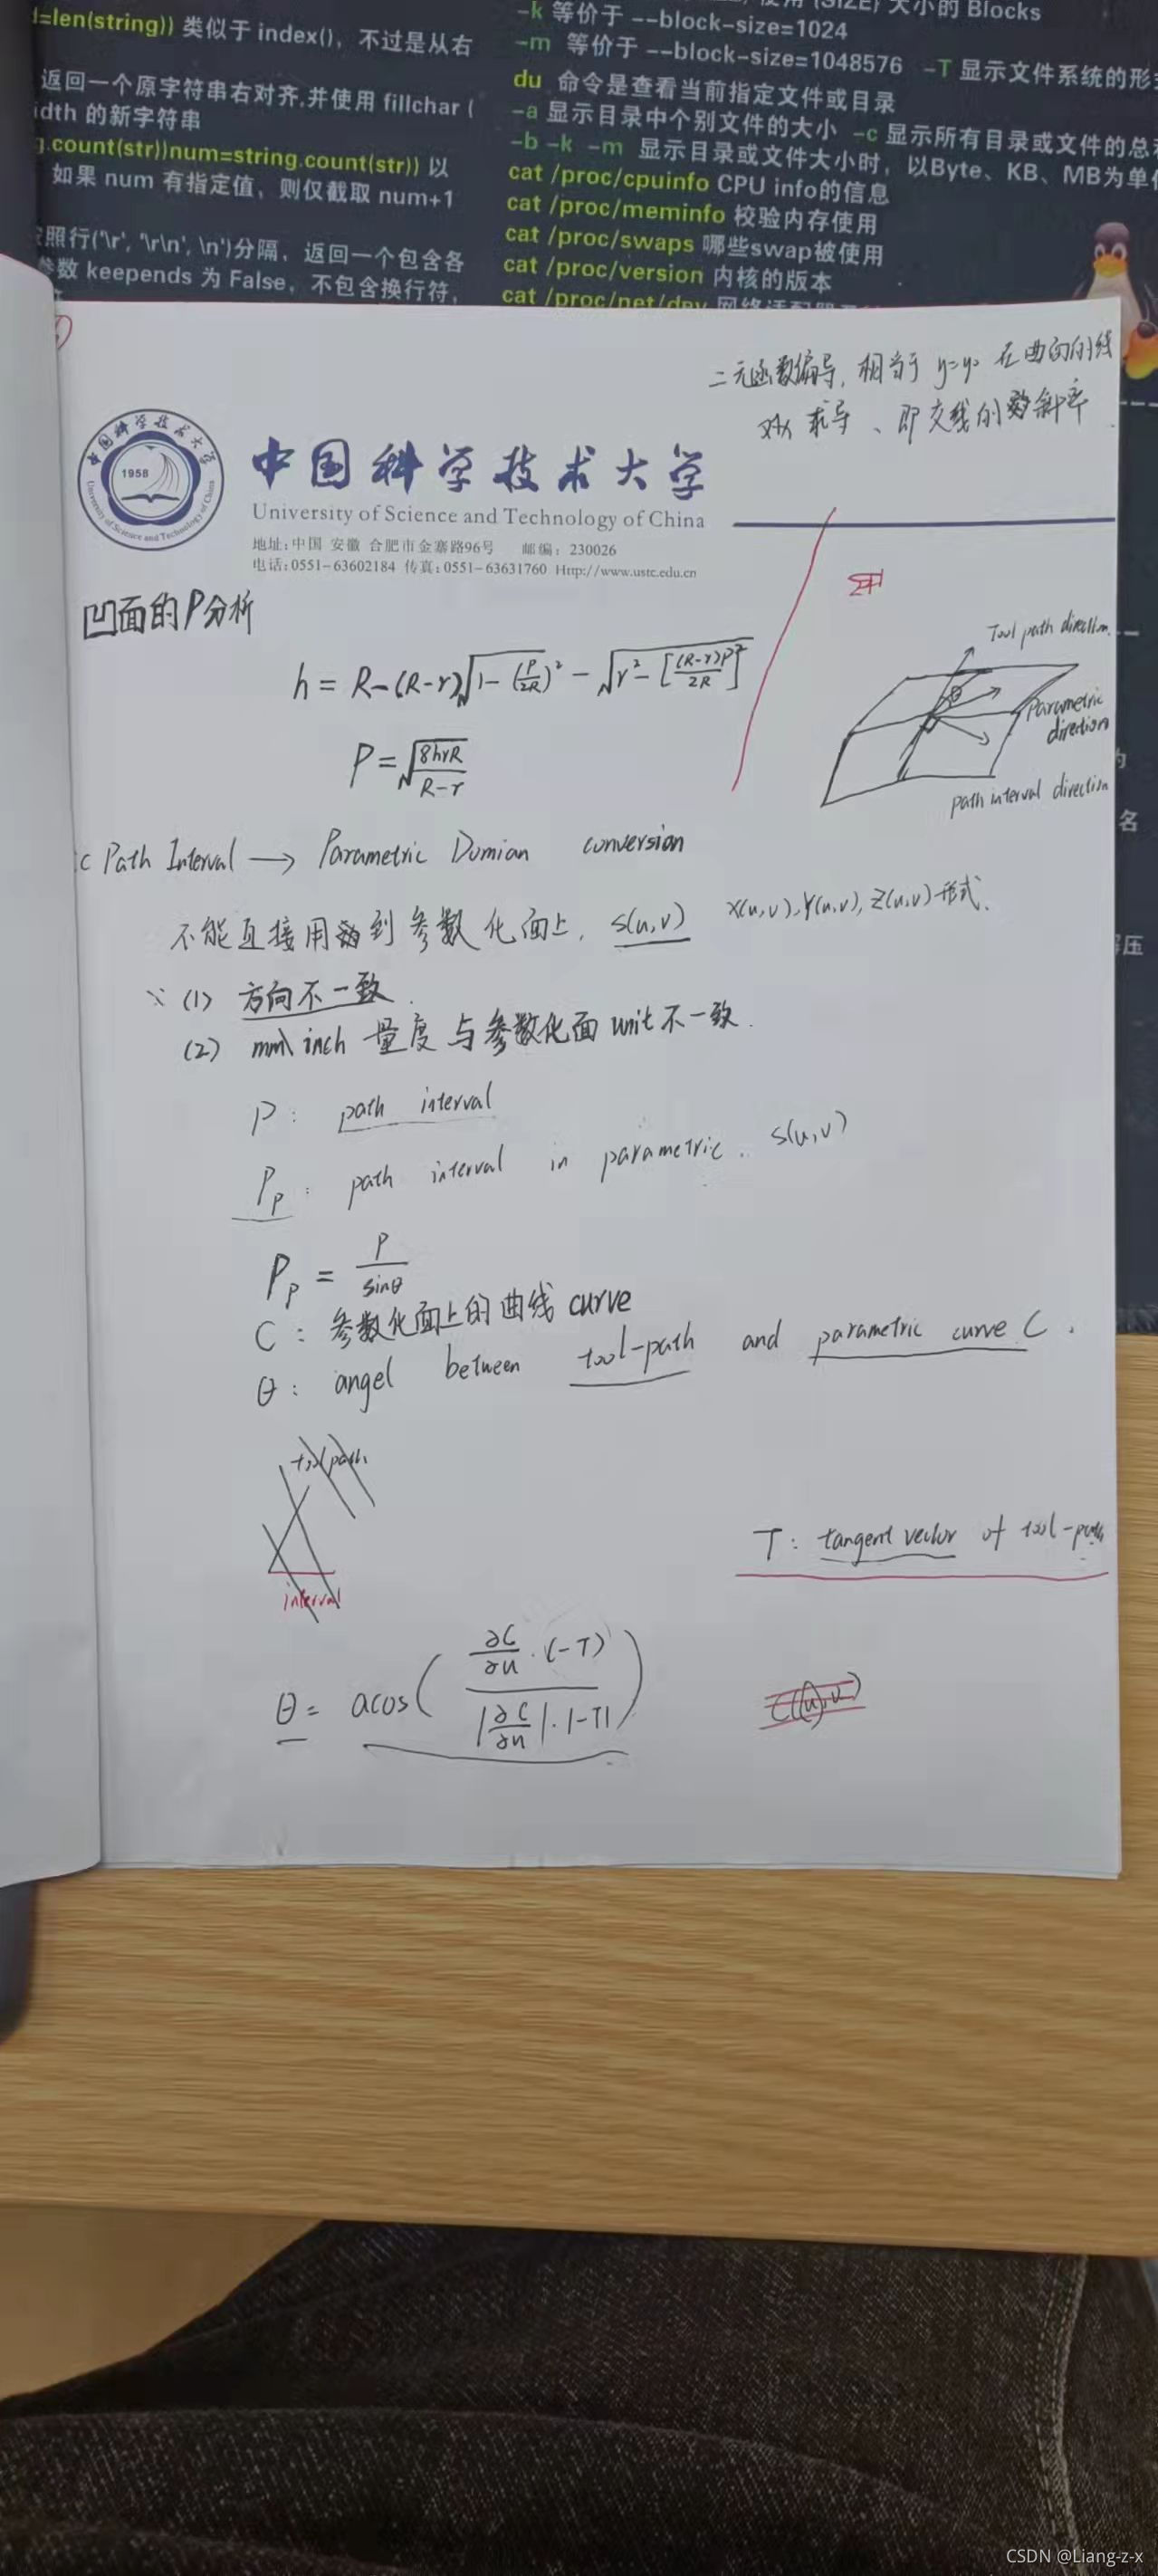 d=len(string)) 类似于 index()，不过是从右
返回一个原字符串右对齐,并使用 fillchar (
idth 的新字符串
g.count(str))num=string.count(str)) 以
如果 num 有指定值，则仅截取 num+1
照行('\r', '\r\n', \n')分隔，返回一个包含各
参数 keepends 为 False，不包含换行符，
大小的 Blocks
-k 等价于 --block-size=1024
-m 等价于 --block-size=1048576 -T 显示文件系统的形
du 命令是查看当前指定文件或目录
-a 显示目录中个别文件的大小 -c 显示所有目录或文件的总
-b -k -m 显示目录或文件大小时，以Byte、KB、MB为单
cat /proc/cpuinfo CPU info的信息
cat /proc/meminfo 校验内存使用
cat /proc/swaps 哪些swap被使用
cat /proc/version 内核的版本
cat /proc/net/dev
名
解压
二元函数偏导，相当于 y=y₀ 在曲面的线
对x 求导、即交线的斜率
中国科学技术大学
1958
University of Science and Technology of China
中国科学技术大学
University of Science and Technology of China
地址:中国 安徽 合肥市金寨路96号 邮编：230026
电话:0551-63602184 传真:0551-63631760 Http://www.ustc.edu.cn
凹面的P分析
h = R-(R-r)√(1-(P/2R)²) - √(r²-[(R-r)P/2R]²)
P=√(8hrR/(R-r))
Tool path direction
θ
parametric
direction
path interval direction
C Path Interval → Parametric Domian conversion
不能直接用到参数化面上, S(u,v) X(u,v),Y(u,v),Z(u,v)形式.
(1) 方向不一致.
(2) mm\inch 量度与参数化面 unit不一致.
P: path interval
Pp: path interval in parametric. S(u,v)
Pp = P/sinθ
C: 参数化面上的曲线 curve
θ: angel between tool-path and parametric curve C.
tool path
interval
T: tangent vector of tool-path
θ= acos( (∂C/∂u · (-T)) / (|∂C/∂u|·|-T|) )
C(u,v)
CSDN @Liang-z-x